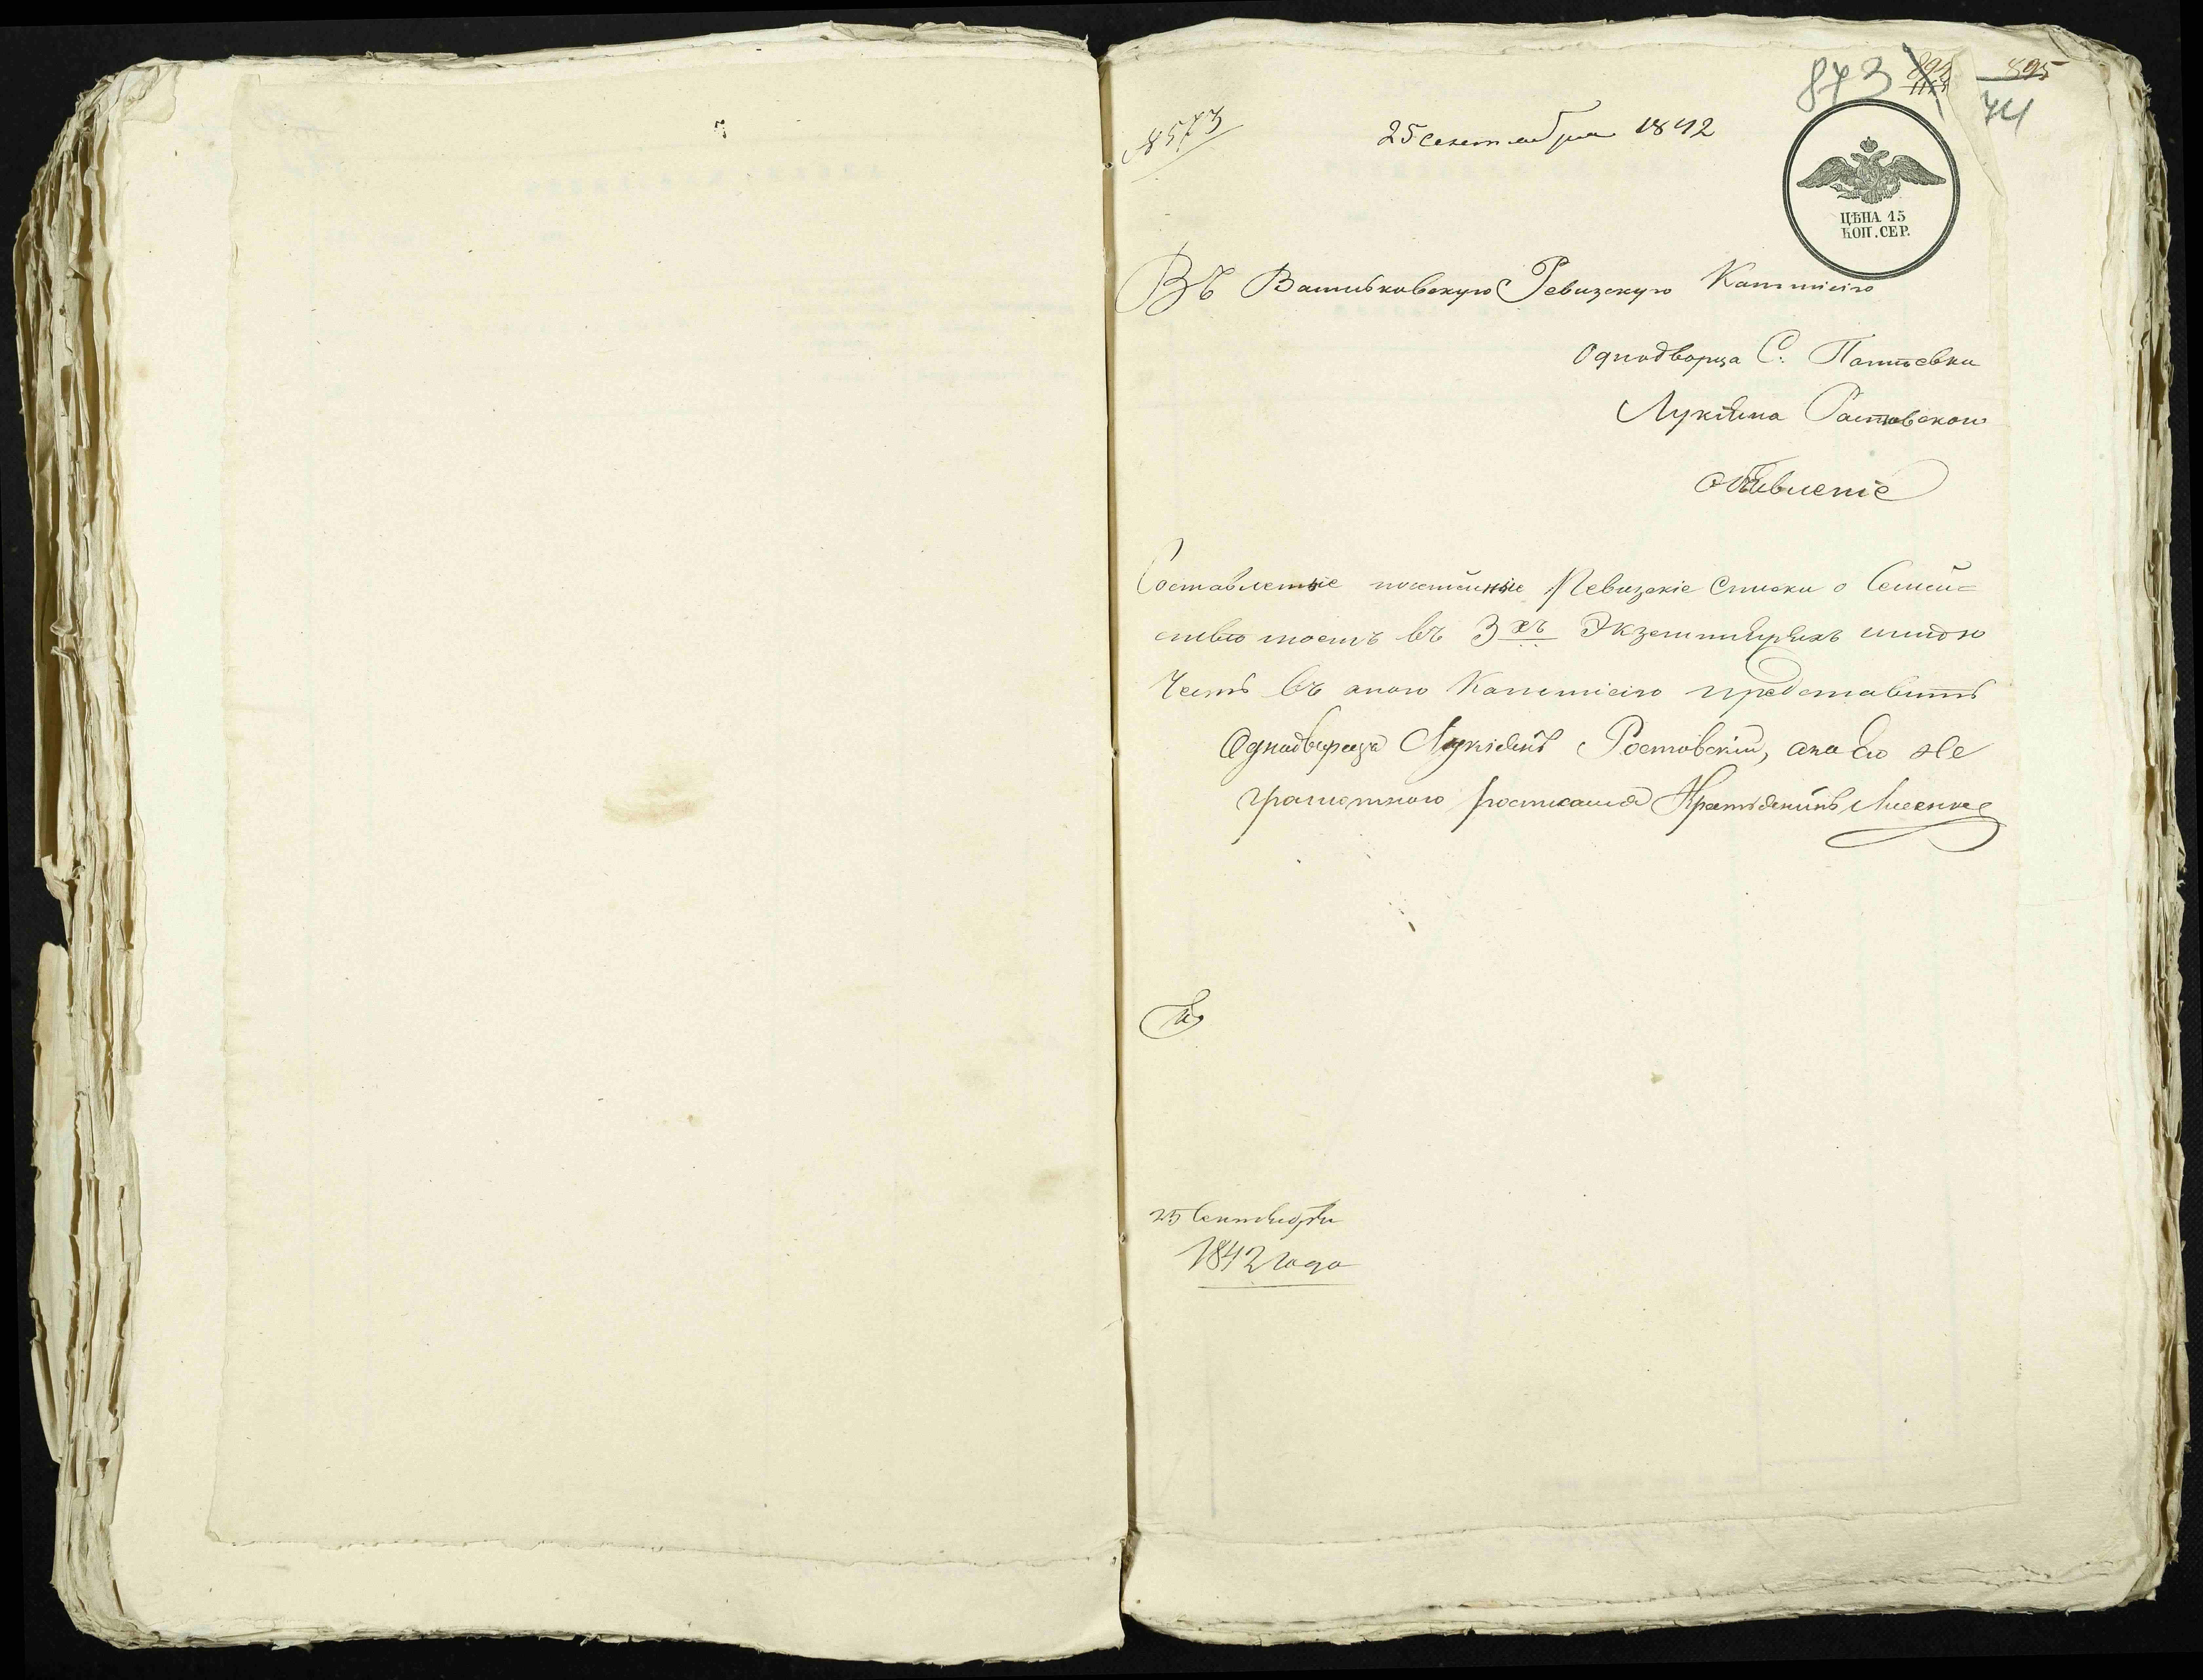 873 895
74
№ 8573
25 сентября 1842
ЦѢНА 15
КОП. СЕР.
Въ Васильковскую Ревизскую Коммисію
Однодворца С:
Лукіяна Ростовского
Объявленіе
Составленные Ревизскіе Списки о Семей=
ствѣ моемъ въ 3хъ Экземплярахъ имѣю
Честь въ оною Коммисію представить
Однодворецъ Лукіянъ Ростовскій, а на его не
грамотного росписался
25 Сентября
1842 года